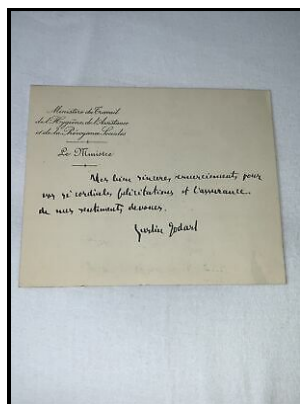 Ministère du Travail
de l'Hygiène, de l'Assistance
et de la Prévoyance Sociales
Le Ministre
Mes bien sincères remerciements pour
vos si cordiales félicitations et l'assurance
de mes sentiments dévoués.
Justin Godart